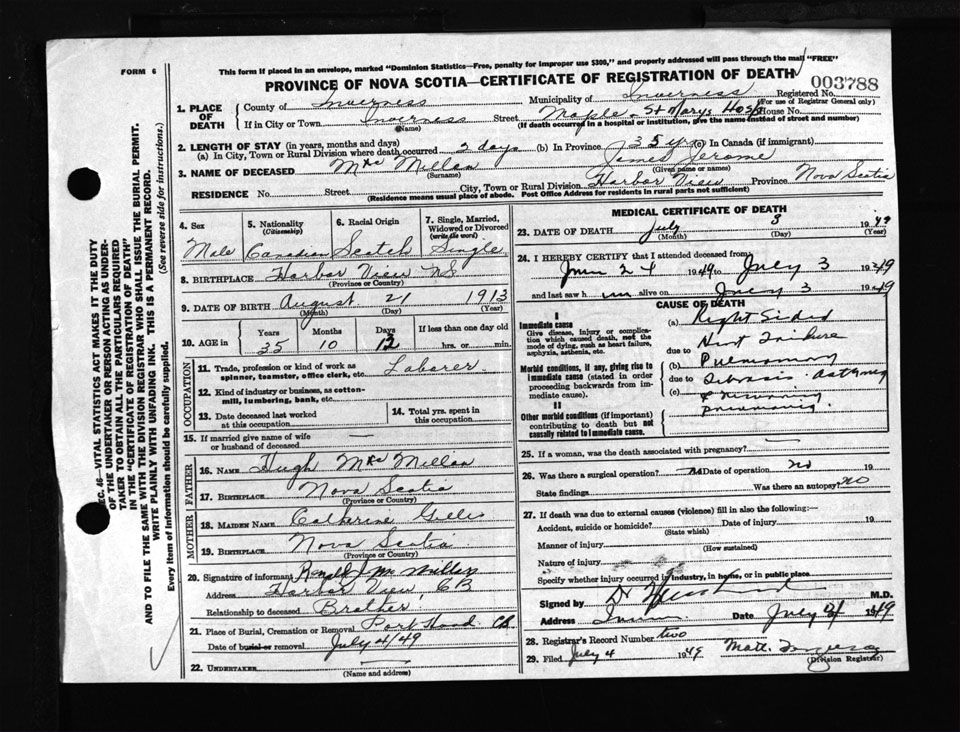 FORM 6
This form if placed in an envelope, marked "Dominion Statistics—Free, penalty for improper use $300," and properly addressed will pass through the mail "FREE"
PROVINCE OF NOVA SCOTIA—CERTIFICATE OF REGISTRATION OF DEATH
003788
Registered No.
(For use of Registrar General only)
1. PLACE OF DEATH
County of Inverness Municipality of Inverness
If in City or Town Inverness Street Maple, St Marys Hosp House No.
(Name) (If death occurred in a hospital or institution, give the name instead of street and number)
2. LENGTH OF STAY (in years, months and days)
(a) In City, Town or Rural Division where death occurred 2 days (b) In Province 35 y (c) In Canada (if immigrant)
3. NAME OF DECEASED McMillan James Jerome
(Surname) (Given name or names)
RESIDENCE No. Street City, Town or Rural Division Harbor View Province Nova Scotia
(Residence means usual place of abode. Post Office Address for residents in rural parts not sufficient)
4. Sex Male
5. Nationality (Citizenship) Canadian
6. Racial Origin Scotch
7. Single, Married, Widowed or Divorced (write the word) Single
8. BIRTHPLACE Harbor View NS
(Province or Country)
9. DATE OF BIRTH August 21 1913
(Month) (Day) (Year)
10. AGE in Years Months Days If less than one day old
35 10 12 hrs. or min.
OCCUPATION
11. Trade, profession or kind of work as spinner, teamster, office clerk, etc. Laborer
12. Kind of industry or business, as cotton-mill, lumbering, bank, etc.
13. Date deceased last worked at this occupation
14. Total yrs. spent in this occupation
15. If married give name of wife or husband of deceased —
FATHER
16. NAME Hugh McMillan
17. BIRTHPLACE Nova Scotia
(Province or Country)
MOTHER
18. MAIDEN NAME Catherine Gillis
19. BIRTHPLACE Nova Scotia
(Province or Country)
20. Signature of informant Ronald J McMillan
Address Harbor View, CB
Relationship to deceased Brother
21. Place of Burial, Cremation or Removal Port Hood CB
Date of burial or removal July 4/49
22. UNDERTAKER —
(Name and address)
MEDICAL CERTIFICATE OF DEATH
23. DATE OF DEATH July 3 1949
(Month) (Day) (Year)
24. I HEREBY CERTIFY that I attended deceased from
1949 to July 3 1949
and last saw h im alive on July 3 1949
CAUSE OF DEATH
I
Immediate cause
Give disease, injury or complication which caused death, not the mode of dying, such as heart failure, asphyxia, asthenia, etc.
(a) Right Sided Heart Failure
due to
Morbid conditions, if any, giving rise to immediate cause (stated in order proceeding backwards from immediate cause).
(b) Pulmonary
due to Fibrosis. Asthma
(c) pneumonia.
II
Other morbid conditions (if important) contributing to death but not causally related to immediate cause.
25. If a woman, was the death associated with pregnancy? —
26. Was there a surgical operation? Date of operation no 19
State findings Was there an autopsy? no
27. If death was due to external causes (violence) fill in also the following:—
Accident, suicide or homicide? Date of injury 19
(State which)
Manner of injury
(How sustained)
Nature of injury
Specify whether injury occurred in industry, in home, or in public place
Signed by M.D.
Address Date July 1949
28. Registrar's Record Number two
29. Filed July 4 1949 Matt.
(Division Registrar)
SEC. 46—VITAL STATISTICS ACT MAKES IT THE DUTY OF THE UNDERTAKER OR PERSON ACTING AS UNDERTAKER TO OBTAIN ALL THE PARTICULARS REQUIRED IN THE "CERTIFICATE OF REGISTRATION OF DEATH" AND TO FILE THE SAME WITH THE DIVISION REGISTRAR WHO SHALL ISSUE THE BURIAL PERMIT.
WRITE PLAINLY WITH UNFADING INK. THIS IS A PERMANENT RECORD.
Every item of information should be carefully supplied. (See reverse side for instructions.)